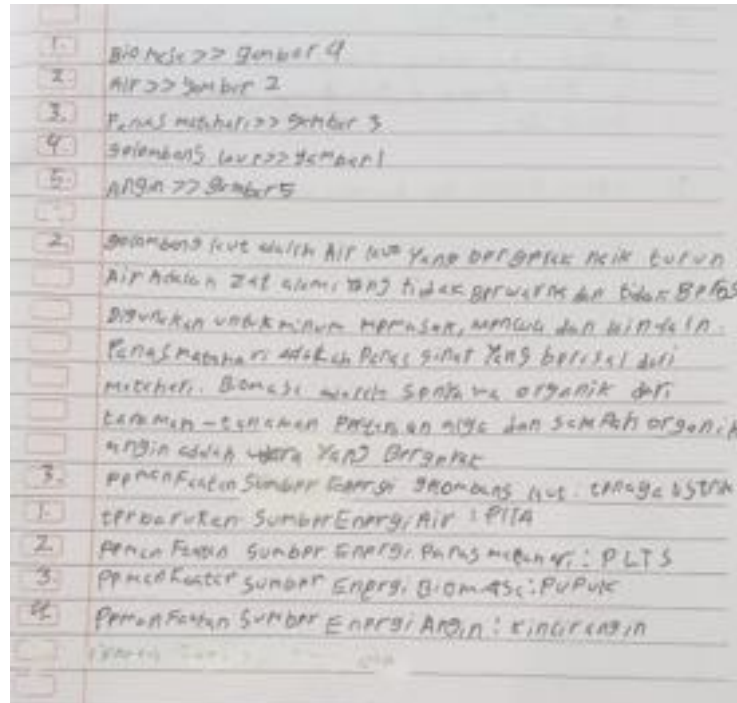 1. Biomasa >> gambar 4
2. Air >> gambar 2
3. Panas matahari >> gambar 3
4. gelombang laut >> gambar 1
5. Angin >> gambar 5
2. gelombang laut adalah Air laut Yang bergerak naik turun
Air Adalah Zat alami Yang tidak Berwarna dan tidak Berasa
Digunakan untuk minum memasak, mencuci dan lain-lain.
Panas matahari adalah Panas Yang berasal dari
matahari. Biomasa adalah organik dari
tanaman-tanaman dan sampah organik
angin adalah Yang Bergerak
3. pemanfaatan Sumber Energi gelombang laut: tenaga listrik
1. terbarukan Sumber Energi Air :
2. pemanfaatan Sumber Energi Panas matahari : PLTS
3. pemanfaatan sumber Energi Biomasa : PUPUK
4. Pemanfaatan Sumber Energi Angin : kincir angin